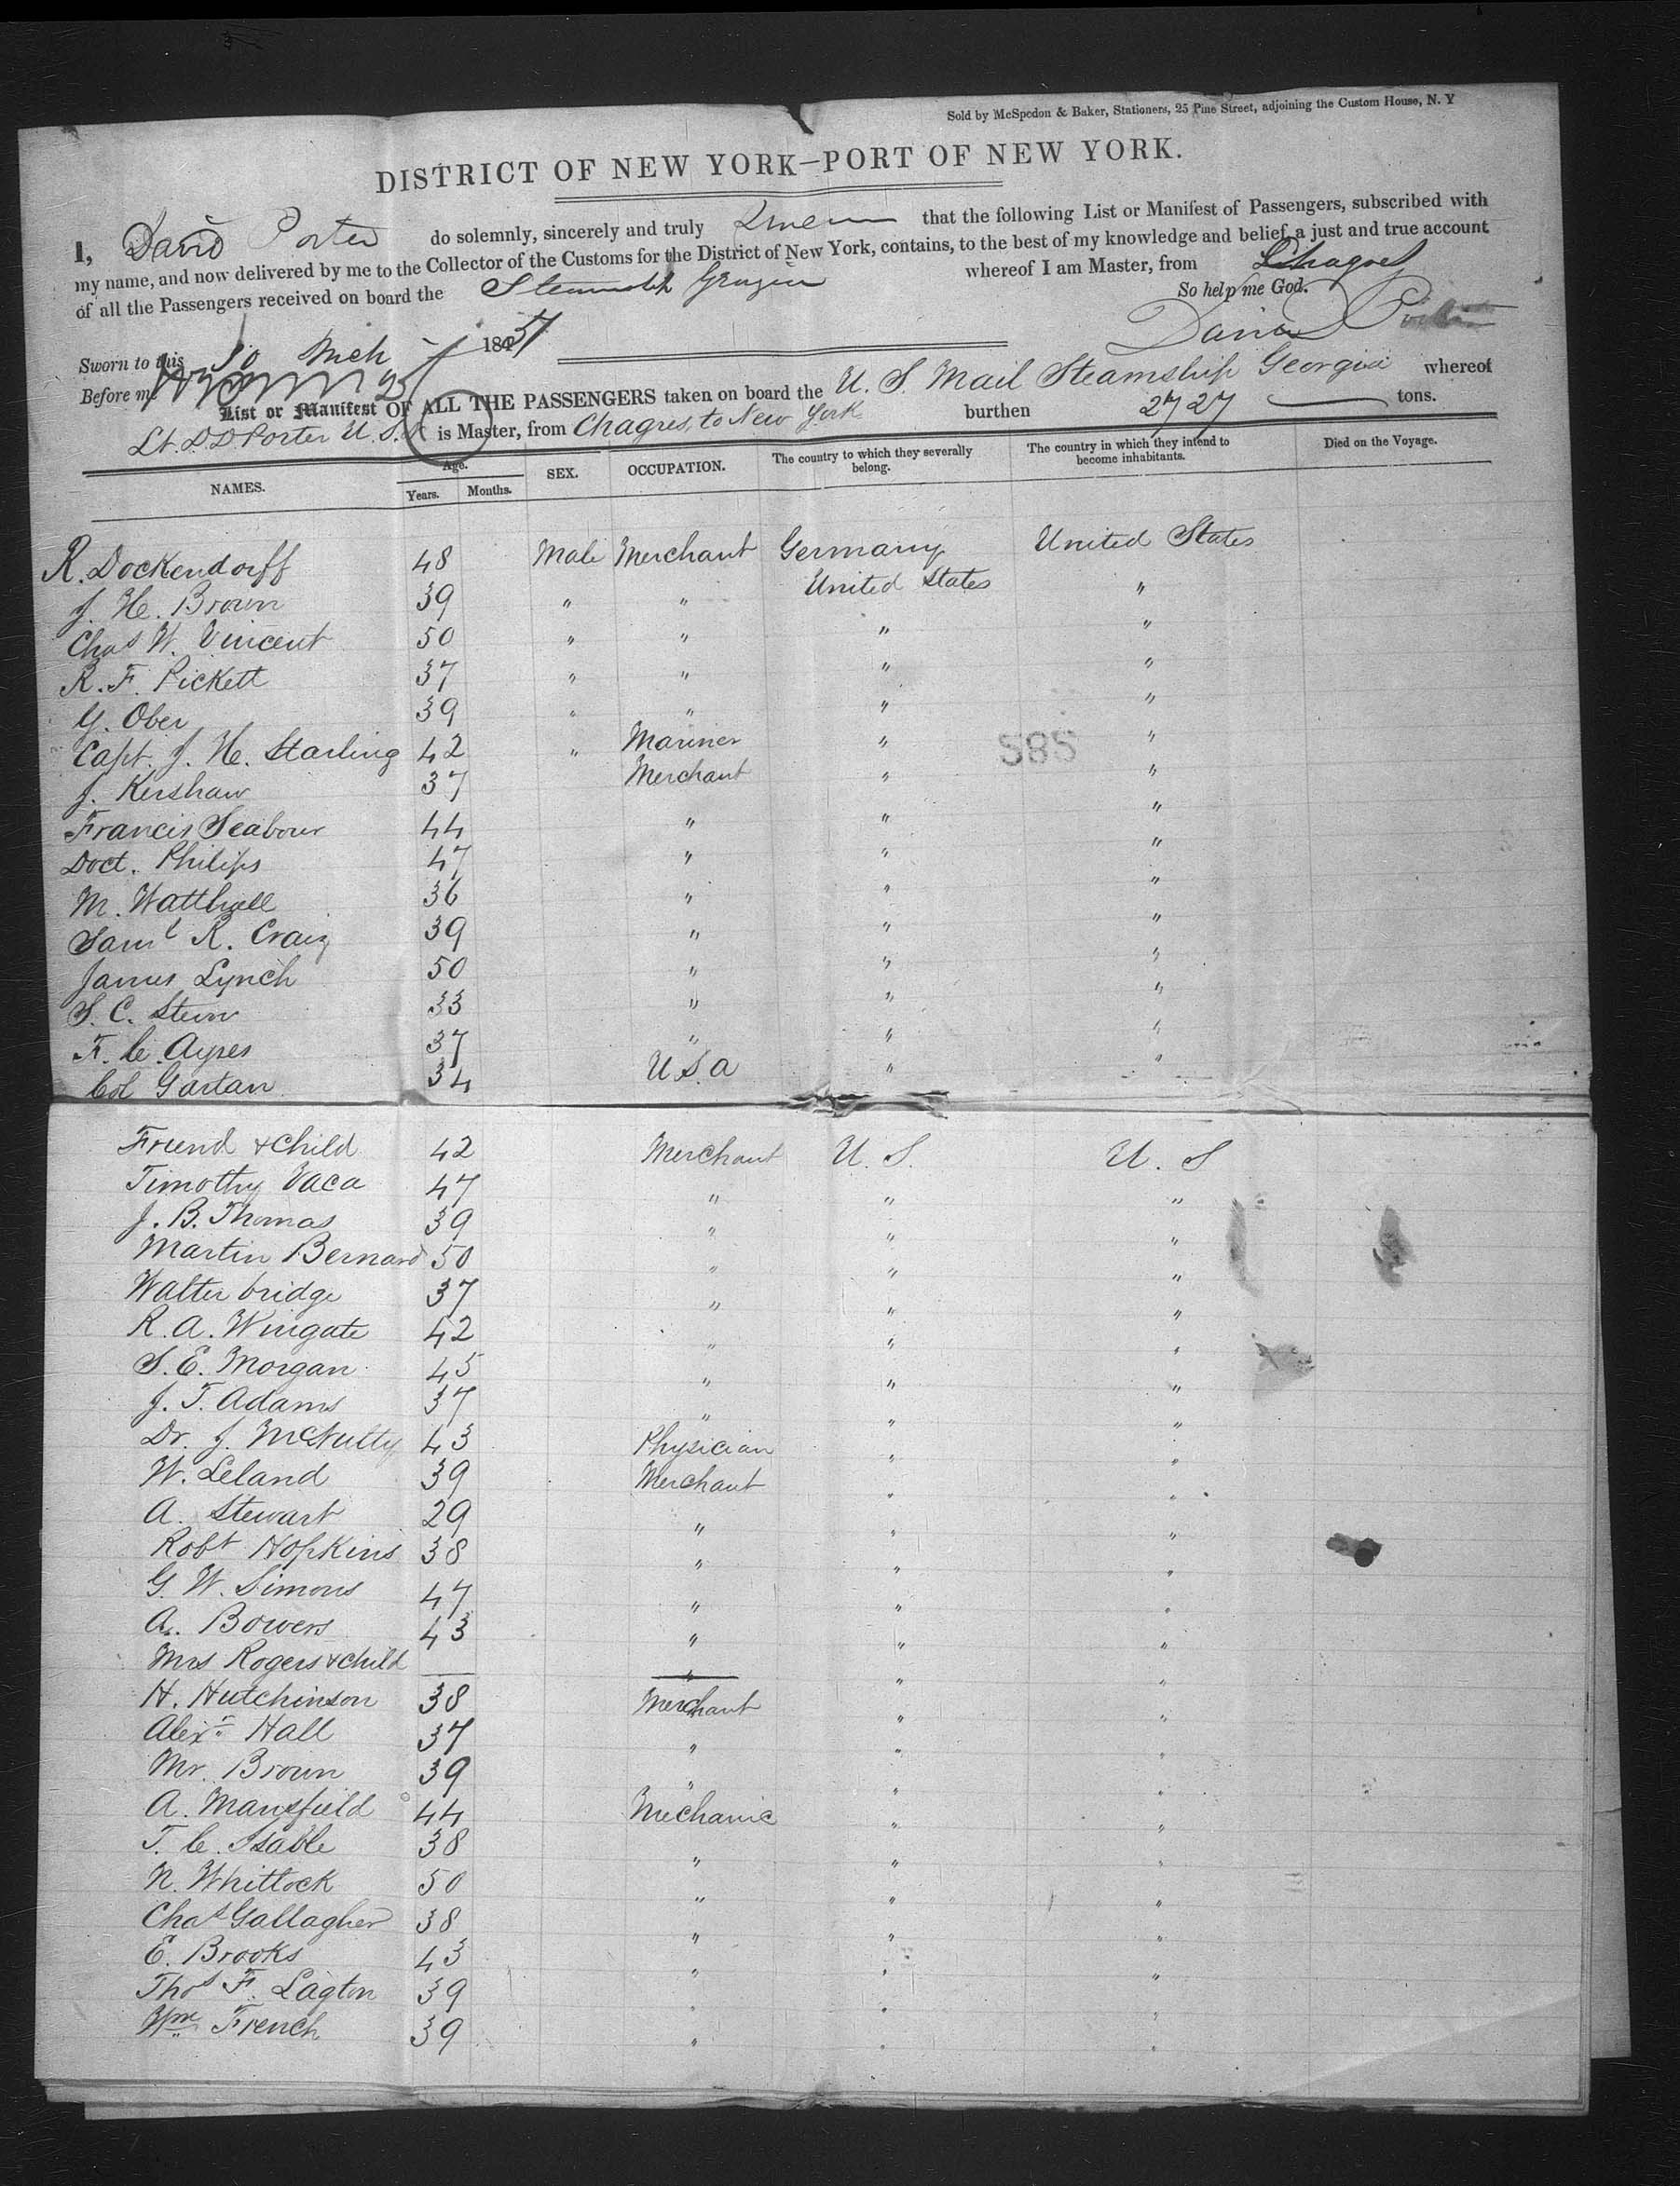 Sold by McSpedon & Baker, Stationers, 25 Pine Street, adjoining the Custom House, N. Y
DISTRICT OF NEW YORK—PORT OF NEW YORK.
I, David Porter do solemnly, sincerely and truly swear that the following List or Manifest of Passengers, subscribed with
my name, and now delivered by me to the Collector of the Customs for the District of New York, contains, to the best of my knowledge and belief, a just and true account
of all the Passengers received on board the Steamship Georgia whereof I am Master, from Chagres
So help me God.
Sworn to this 10 Mch 1851
David Porter
Before me
List or Manifest OF ALL THE PASSENGERS taken on board the U. S. Mail Steamship Georgia whereof
Lt. D D Porter U. S. N is Master, from Chagres, to New York burthen 2727 tons.
NAMES. Age. Years. Months. SEX. OCCUPATION. The country to which they severally belong. The country in which they intend to become inhabitants. Died on the Voyage.
R. Dockendorff 48 Male Merchant Germany United States
J. H. Brown 39 " " United States "
Chas W. Vincent 50 " " " "
R. F. Pickett 37 " " " "
G. Ober 39 " " " "
Capt. J. H. Starling 42 " Mariner " "
585
J. Kershaw 37 Merchant " "
Francis Seabour 44 " " "
Doct. Philips 47 " " "
M. Watthall 36 " " "
Saml R. Craig 39 " " "
James Lynch 50 " " "
S. C. Stern 33 " " "
F. C. Ayres 37 " " "
Col Gartan 34 U.S.A " "
Friend & Child 42 Merchant U. S. U. S
Timothy Vaca 47 " " "
J. B. Thomas 39 " " "
Martin Bernard 50 " " "
Walter bridge 37 " " "
R. A. Wingate 42 " " "
S. E. Morgan 45 " " "
J. T. Adams 37 " " "
Dr. J. McNulty 43 Physician " "
W. Leland 39 Merchant " "
A. Stewart 29 " " "
Robt Hopkins 38 " " "
G. W. Simons 47 " " "
A. Bowers 43 " " "
Mrs Rogers & child — " " "
H. Hutchinson 38 Merchant " "
Alexr Hall 37 " " "
Mr. Brown 39 " " "
A. Mansfield 44 Mechanic " "
T. C. Isable 38 " " "
N. Whitlock 50 " " "
Chas Gallagher 38 " " "
E. Brooks 43 " " "
Thos F. Lagton 39 " " "
Wm French 39 " " "